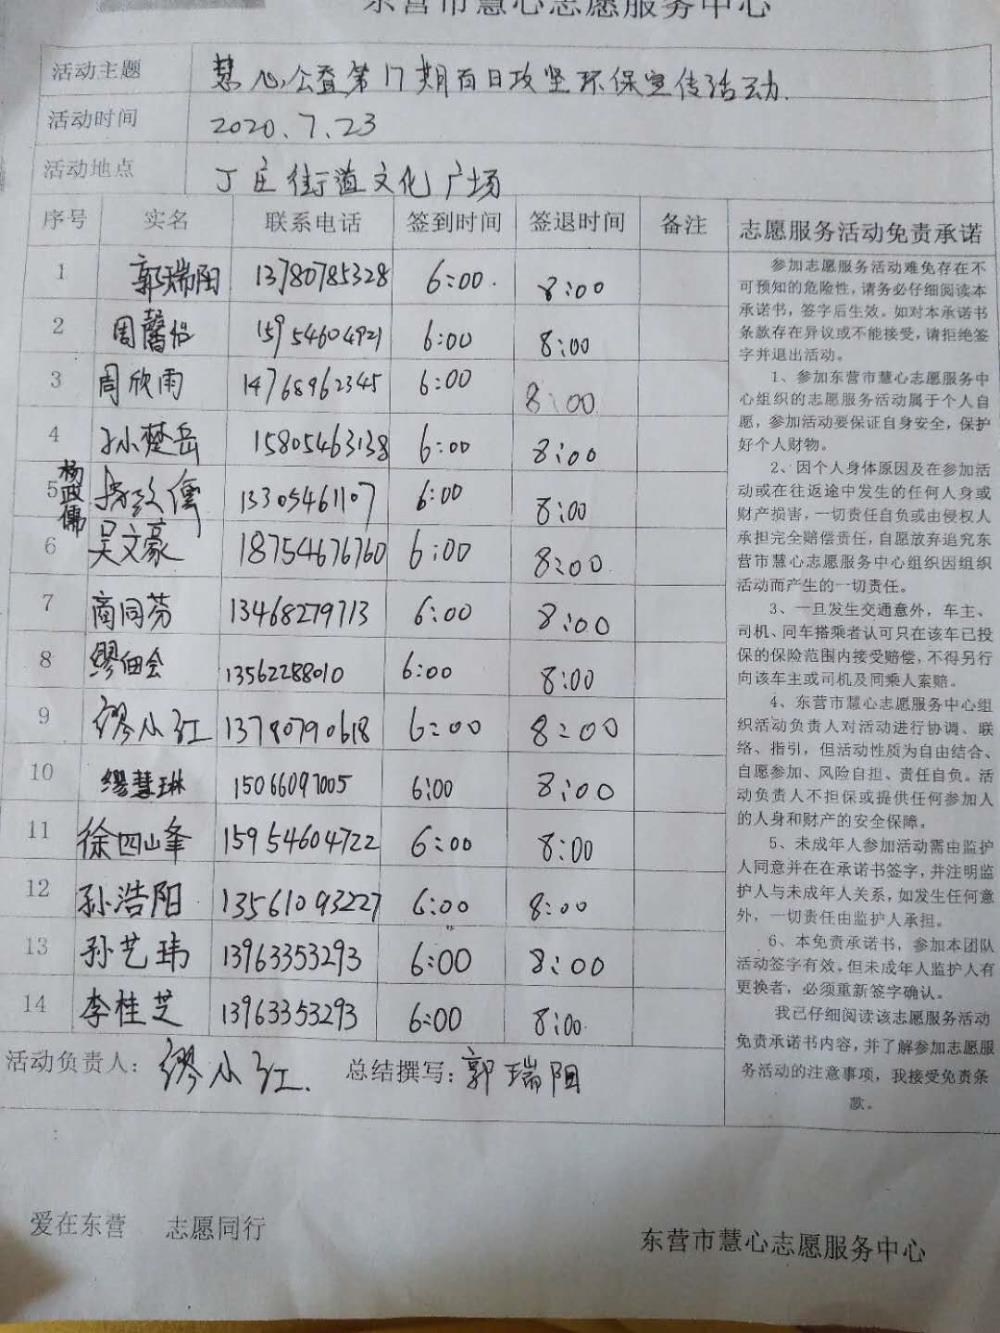 东营市慧心志愿服务中心
活动主题 慧心公益第17期百日攻坚环保宣传活动.
活动时间 2020.7.23
活动地点 丁庄街道文化广场
序号 实名 联系电话 签到时间 签退时间 备注
1 郭瑞阳 13780785328 6:00. 8:00
2 周馨 15954604921 6:00 8:00
3 周欣雨 14768962345 6:00 8:00
4 孙楚岳 15805463138 6:00 8:00
杨政儒
5 13305461107 6:00 8:00
6 吴文豪 18754676760 6:00 8:00
7 商同芬 13468279713 6:00 8:00
8 缪佃会 13562288010 6:00 8:00
9 缪小红 13780790618 6:00 8:00
10 缪慧琳 15066091005 6:00 8:00
11 徐四山峰 15954604722 6:00 8:00
12 孙浩阳 13561093227 6:00 8:00
13 孙艺玮 13963353293 6:00 8:00
14 李桂芝 13963353293 6:00 8:00
活动负责人：缪小红. 总结撰写：郭瑞阳
志愿服务活动免责承诺
参加志愿服务活动难免存在不
可预知的危险性，请务必仔细阅读本
承诺书，签字后生效。如对本承诺书
条款存在异议或不能接受，请拒绝签
字并退出活动。
1、参加东营市慧心志愿服务中
心组织的志愿服务活动属于个人自
愿，参加活动要保证自身安全，保护
好个人财物。
2、因个人身体原因及在参加活
动或在往返途中发生的任何人身或
财产损害，一切责任自负或由侵权人
承担完全赔偿责任，自愿放弃追究东
营市慧心志愿服务中心组织因组织
活动而产生的一切责任。
3、一旦发生交通意外，车主、
司机、同车搭乘者认可只在该车已投
保的保险范围内接受赔偿，不得另行
向该车主或司机及同乘人索赔。
4、东营市慧心志愿服务中心组
织活动负责人对活动进行协调、联
络、指引，但活动性质为自由结合、
自愿参加、风险自担、责任自负。活
动负责人不担保或提供任何参加人
的人身和财产的安全保障。
5、未成年人参加活动需由监护
人同意并在在承诺书签字，并注明监
护人与未成年人关系，如发生任何意
外，一切责任由监护人承担。
6、本免责承诺书，参加本团队
活动签字有效，但未成年人监护人有
更换者，必须重新签字确认。
我已仔细阅读该志愿服务活动
免责承诺书内容，并了解参加志愿服
务活动的注意事项，我接受免责条
款。
爱在东营 志愿同行
东营市慧心志愿服务中心